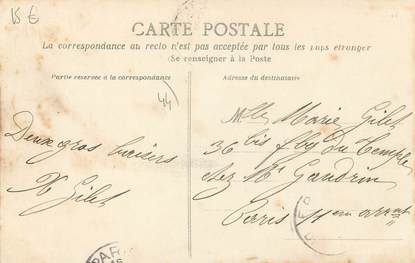 15 €
CARTE POSTALE
La correspondance au recto n'est pas acceptée par tous les pays étranger
(Se renseigner à la Poste
Partie réservée à la correspondance
Adresse du destinataire
44)
Deux gros baisers
Gilet
Mlle Marie Gilet
36 bis fbg du Temple
chez Mr Gaudrin
Paris 11em arrmt
PAR